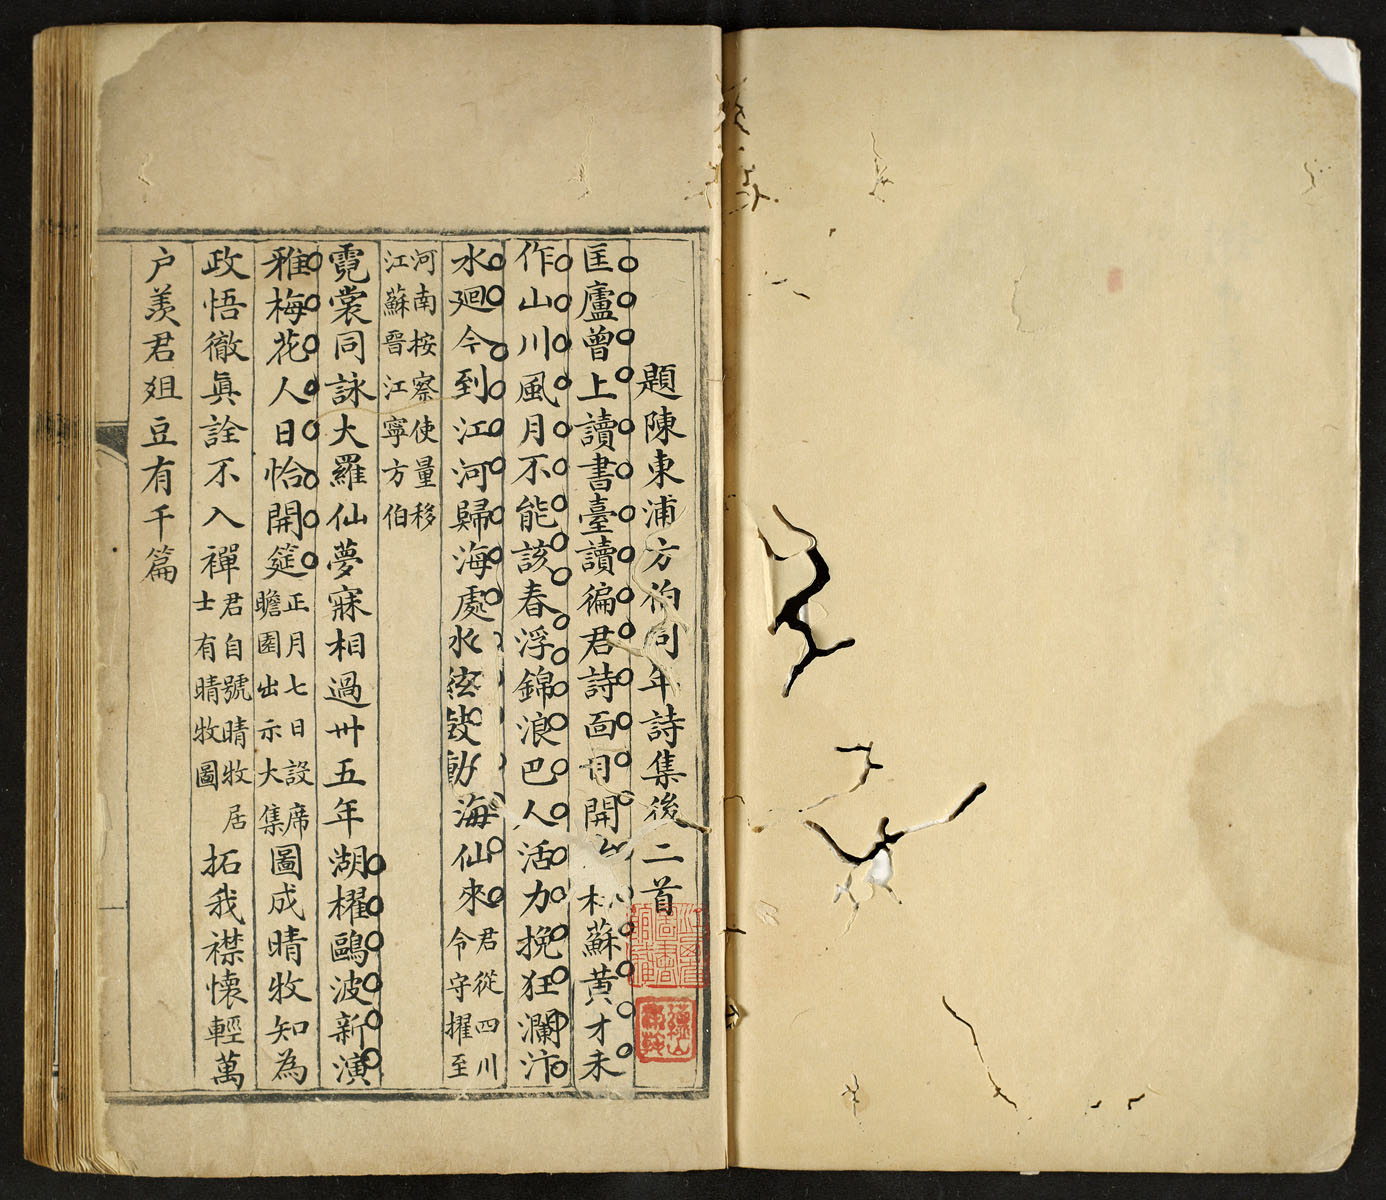 題陳東浦方伯同年詩集後二首
匡廬曾上讀書臺讀徧君詩面有開 蘇黄才未
作山川風月不能該春浮錦浪巴人活力挽狂瀾汴
水廻今到江河歸海處水絃 動海仙來君從四川令守擢至
河南按察使量移江蘇晉江寧方伯
霓裳同詠大羅仙夢寐相過卅五年湖櫂鷗波新演
雅梅花人日恰開筵正月七日設席瞻園出示大集圖成晴牧知為
政悟徹眞詮不入禪君自號晴牧居士有晴牧圖拓我襟懷輕萬
户羨君俎豆有千篇